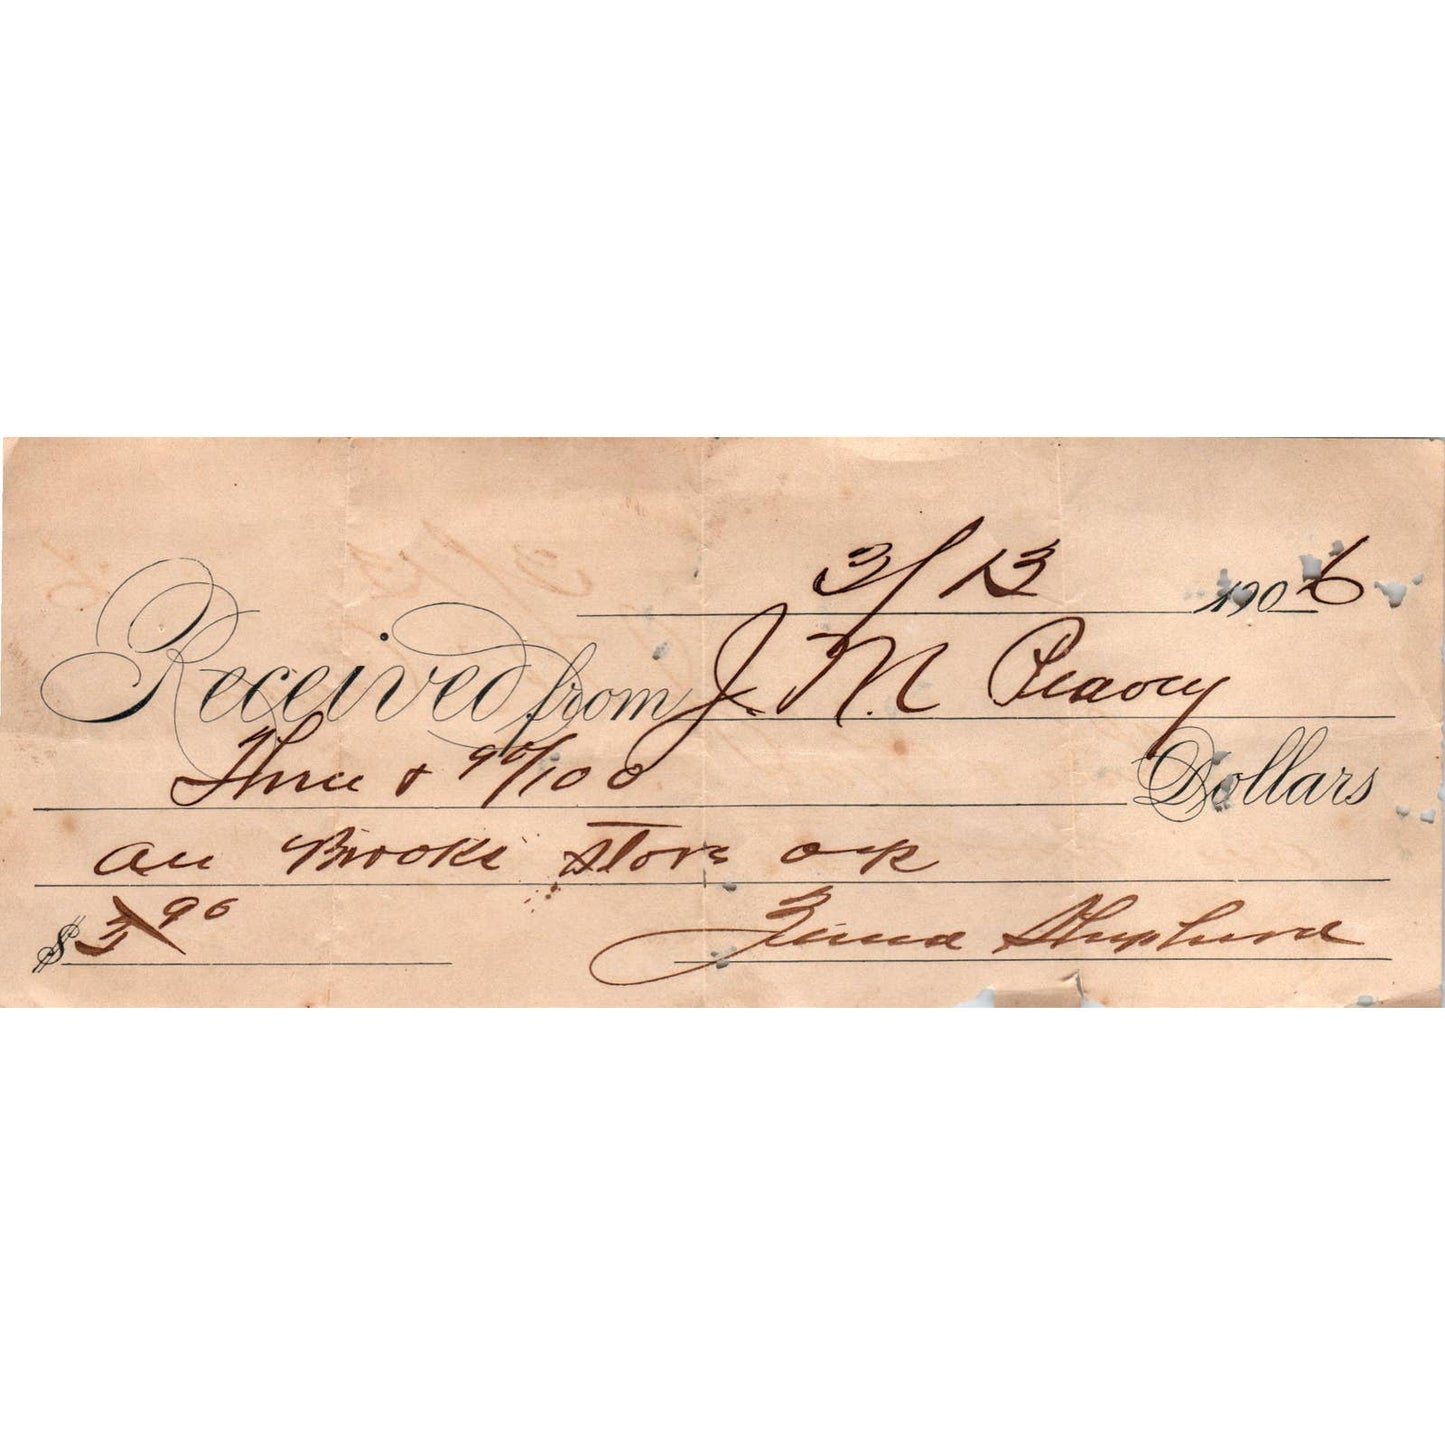 3/13 1906
Received from J. M. Peavey
Three & 90/100 Dollars
on Brooks store
$ 3 90
Shepherd